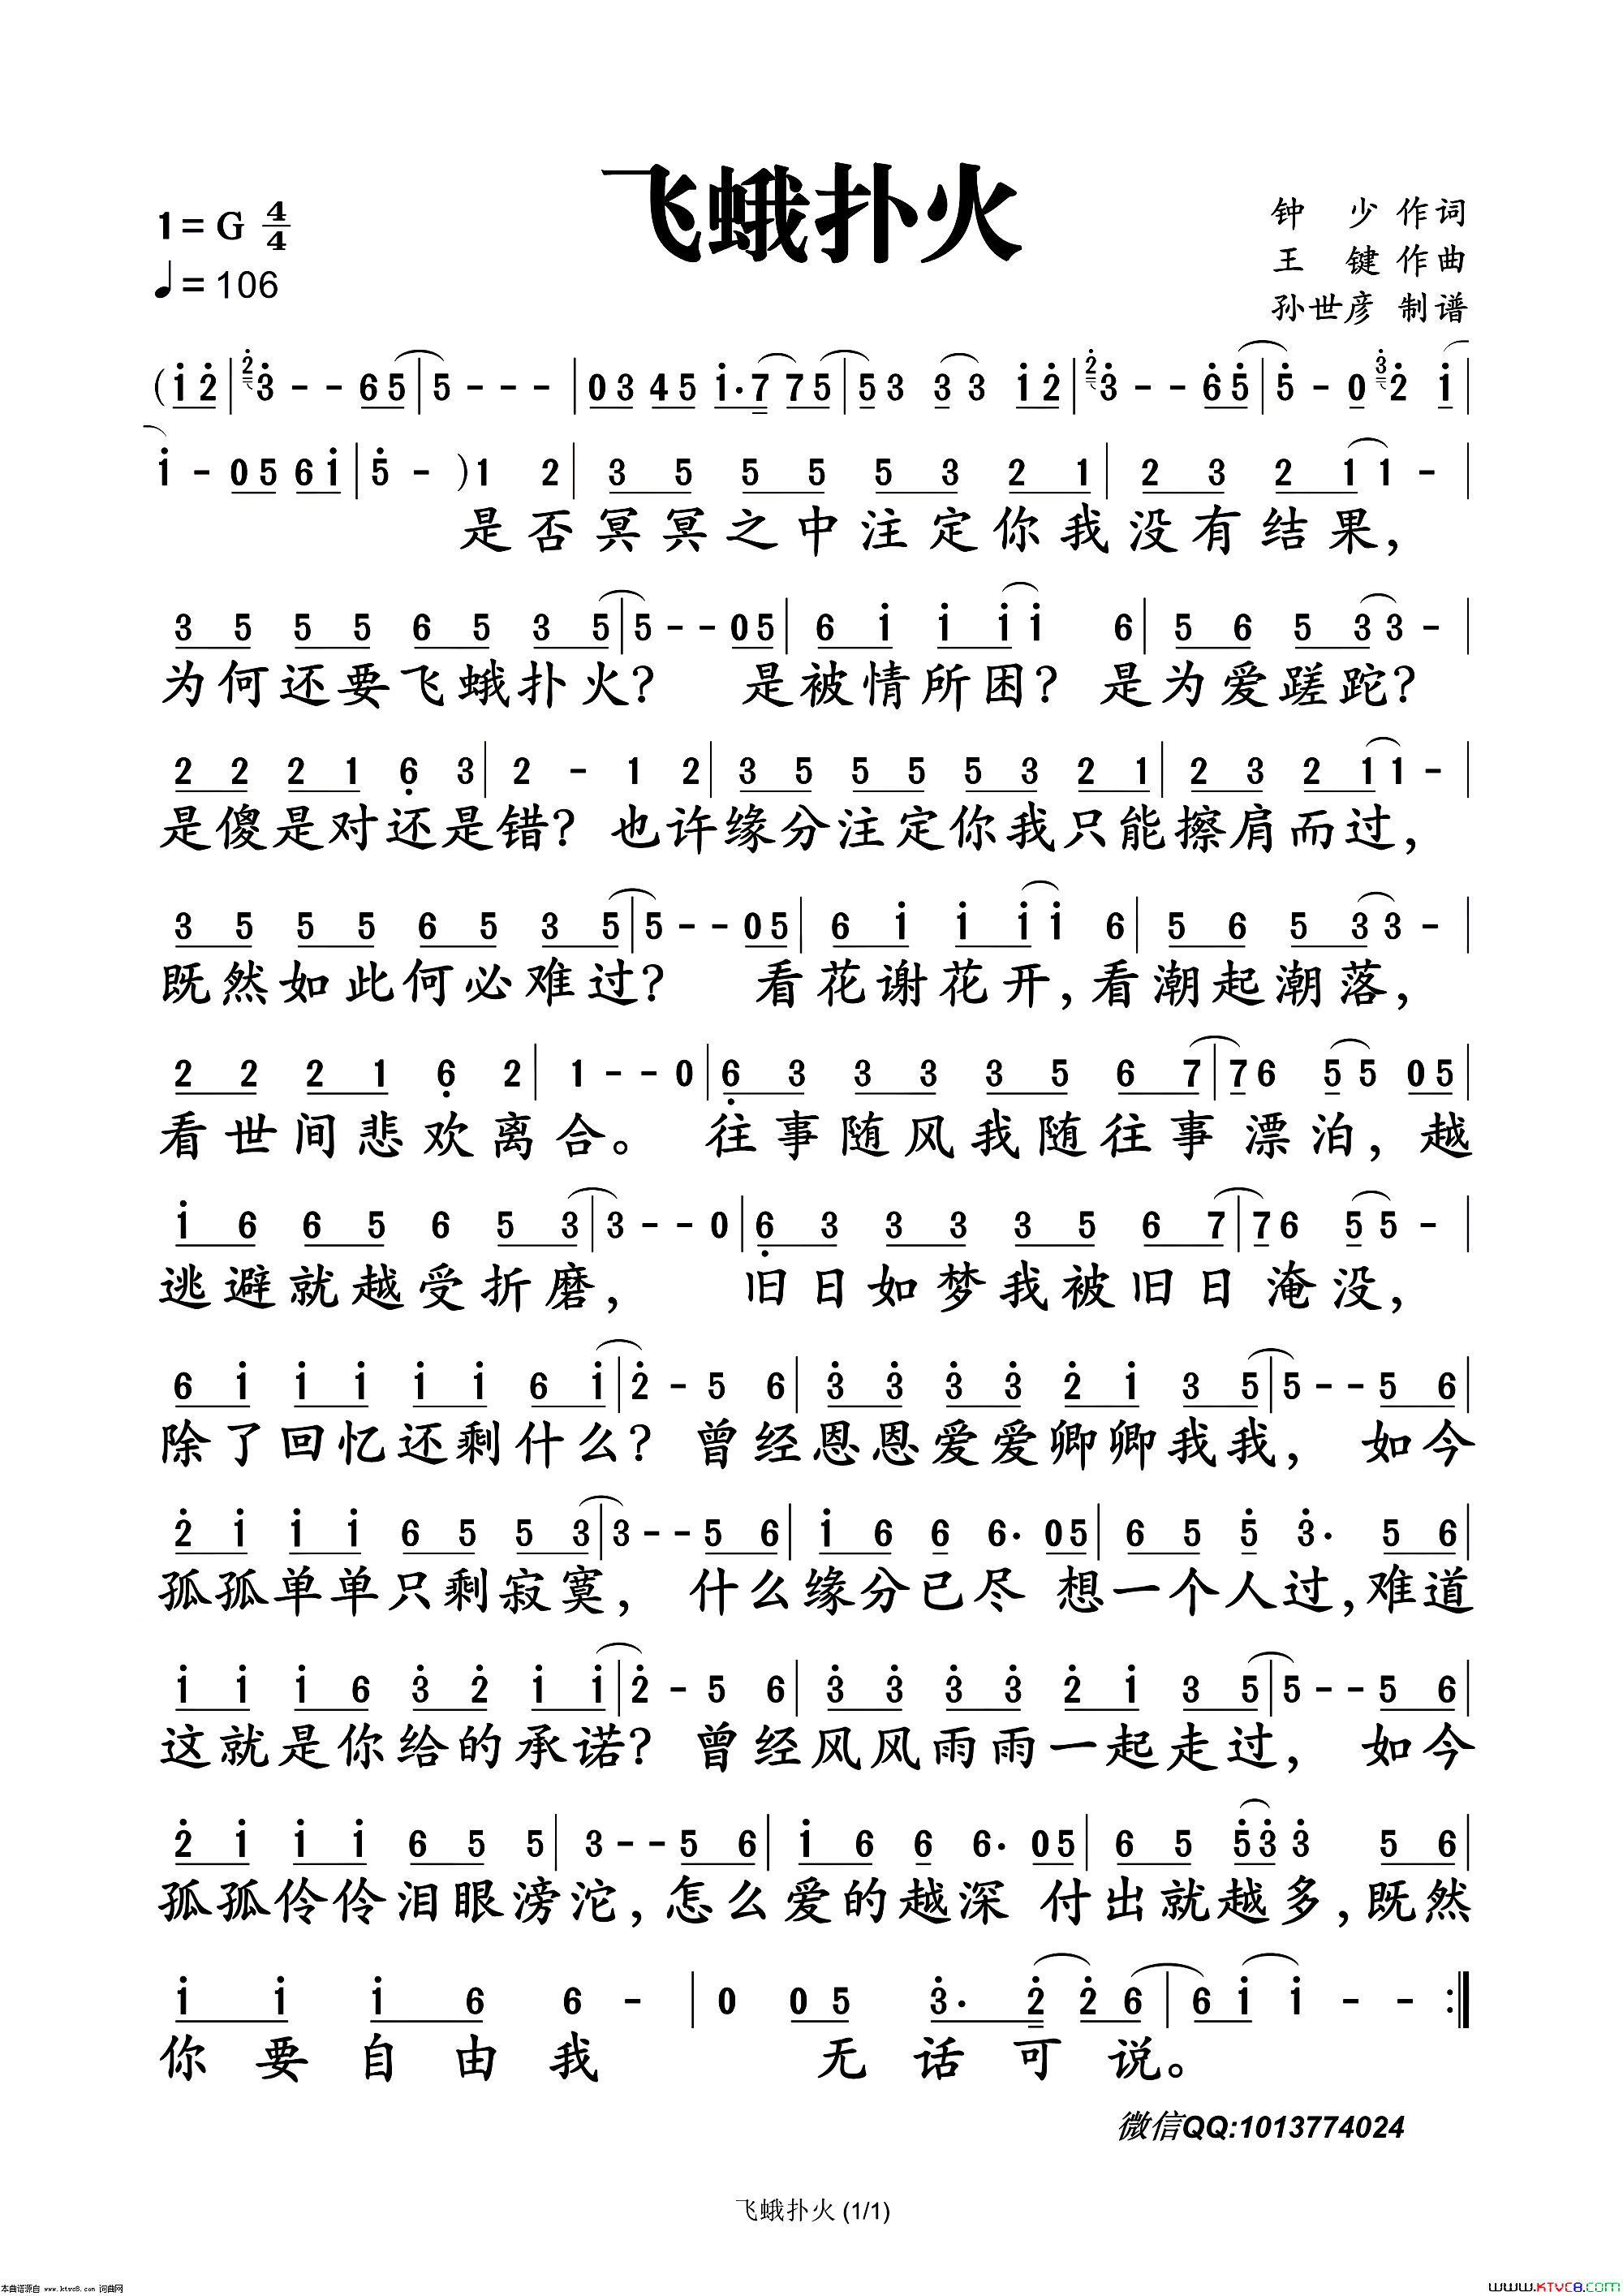 飞蛾扑火
1=G 4/4
♩=106
钟 少 作词
王 键 作曲
孙世彦 制谱
(i̇ 2̇ | 2̇ 3̇ - - 6 5 | 5 - - - | 0 3 4 5 i̇· 7 7 5 | 5 3 3 3 i̇ 2̇ | 2̇ 3̇ - - 6̇ 5̇ | 5̇ - 0 3̇ 2̇ i̇ |
i̇ - 0 5 6 i̇ | 5̇ - ) 1 2 | 3 5 5 5 5 3 2 1 | 2 3 2 1 1 - |
是否冥冥之中注定你我没有结果,
3 5 5 5 6 5 3 5 | 5 - - 0 5 | 6 i̇ i̇ i̇ i̇ 6 | 5 6 5 3 3 - |
为何还要飞蛾扑火? 是被情所困? 是为爱蹉跎?
2 2 2 1 6̣ 3 | 2 - 1 2 | 3 5 5 5 5 3 2 1 | 2 3 2 1 1 - |
是傻是对还是错? 也许缘分注定你我只能擦肩而过,
3 5 5 5 6 5 3 5 | 5 - - 0 5 | 6 i̇ i̇ i̇ i̇ 6 | 5 6 5 3 3 - |
既然如此何必难过? 看花谢花开,看潮起潮落,
2 2 2 1 6̣ 2 | 1 - - 0 | 6̣ 3 3 3 3 5 6 7 | 7 6 5 5 0 5 |
看世间悲欢离合。 往事随风我随往事漂泊, 越
i̇ 6 6 5 6 5 3 | 3 - - 0 | 6̣ 3 3 3 3 5 6 7 | 7 6 5 5 - |
逃避就越受折磨, 旧日如梦我被旧日淹没,
6 i̇ i̇ i̇ i̇ i̇ 6 i̇ | 2̇ - 5 6 | 3̇ 3̇ 3̇ 3̇ 2̇ i̇ 3 5 | 5 - - 5 6 |
除了回忆还剩什么? 曾经恩恩爱爱卿卿我我, 如今
2̇ i̇ i̇ i̇ 6 5 5 3 | 3 - - 5 6 | i̇ 6 6 6· 0 5 | 6 5 5̇ 3̇· 5 6 |
孤孤单单只剩寂寞, 什么缘分已尽 想一个人过,难道
i̇ i̇ i̇ 6 3̇ 2̇ i̇ i̇ | 2̇ - 5 6 | 3̇ 3̇ 3̇ 3̇ 2̇ i̇ 3 5 | 5 - - 5 6 |
这就是你给的承诺? 曾经风风雨雨一起走过, 如今
2̇ i̇ i̇ i̇ 6 5 5 | 3 - - 5 6 | i̇ 6 6 6· 0 5 | 6 5 5̇ 3̇ 3̇ 5 6 |
孤孤伶伶泪眼滂沱,怎么爱的越深 付出就越多,既然
i̇ i̇ i̇ 6 6 - | 0 0 5 3̇· 2̇ 2̇ 6 | 6 i̇ i̇ - - :‖
你要自由我 无话可说。
微信QQ:1013774024
飞蛾扑火 (1/1)
本曲谱源自 www.ktvc8.com 词曲网
www.KTVC8.com